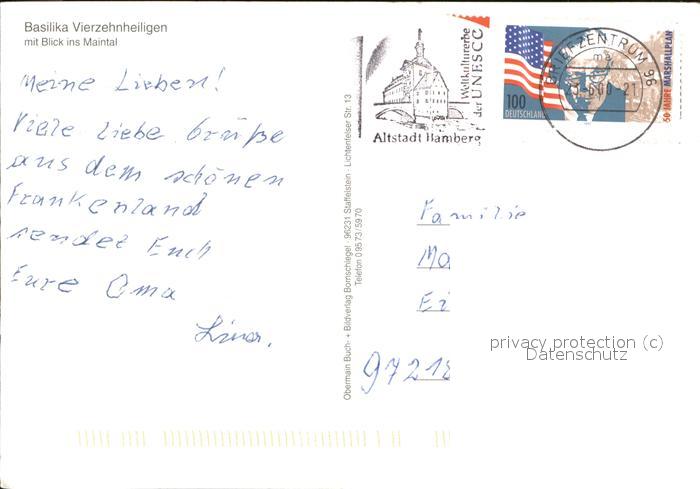 Basilika Vierzehnheiligen
mit Blick ins Maintal
Meine Lieben!
Viele liebe Grüße
aus dem schönen
Frankenland
sendet Euch
Eure Oma
Lina.
Obermain Buch- + Bildverlag Bornschlegel · 96231 Staffelstein · Lichtenfelser Str. 13
Telefon 0 95 73 / 59 70
Weltkulturerbe
der UNESCO
Altstadt Bamberg
BRIEFZENTRUM 96
100
DEUTSCHLAND
50 JAHRE MARSHALLPLAN
Familie
Ma
Ei
97218
privacy protection (c)
Datenschutz